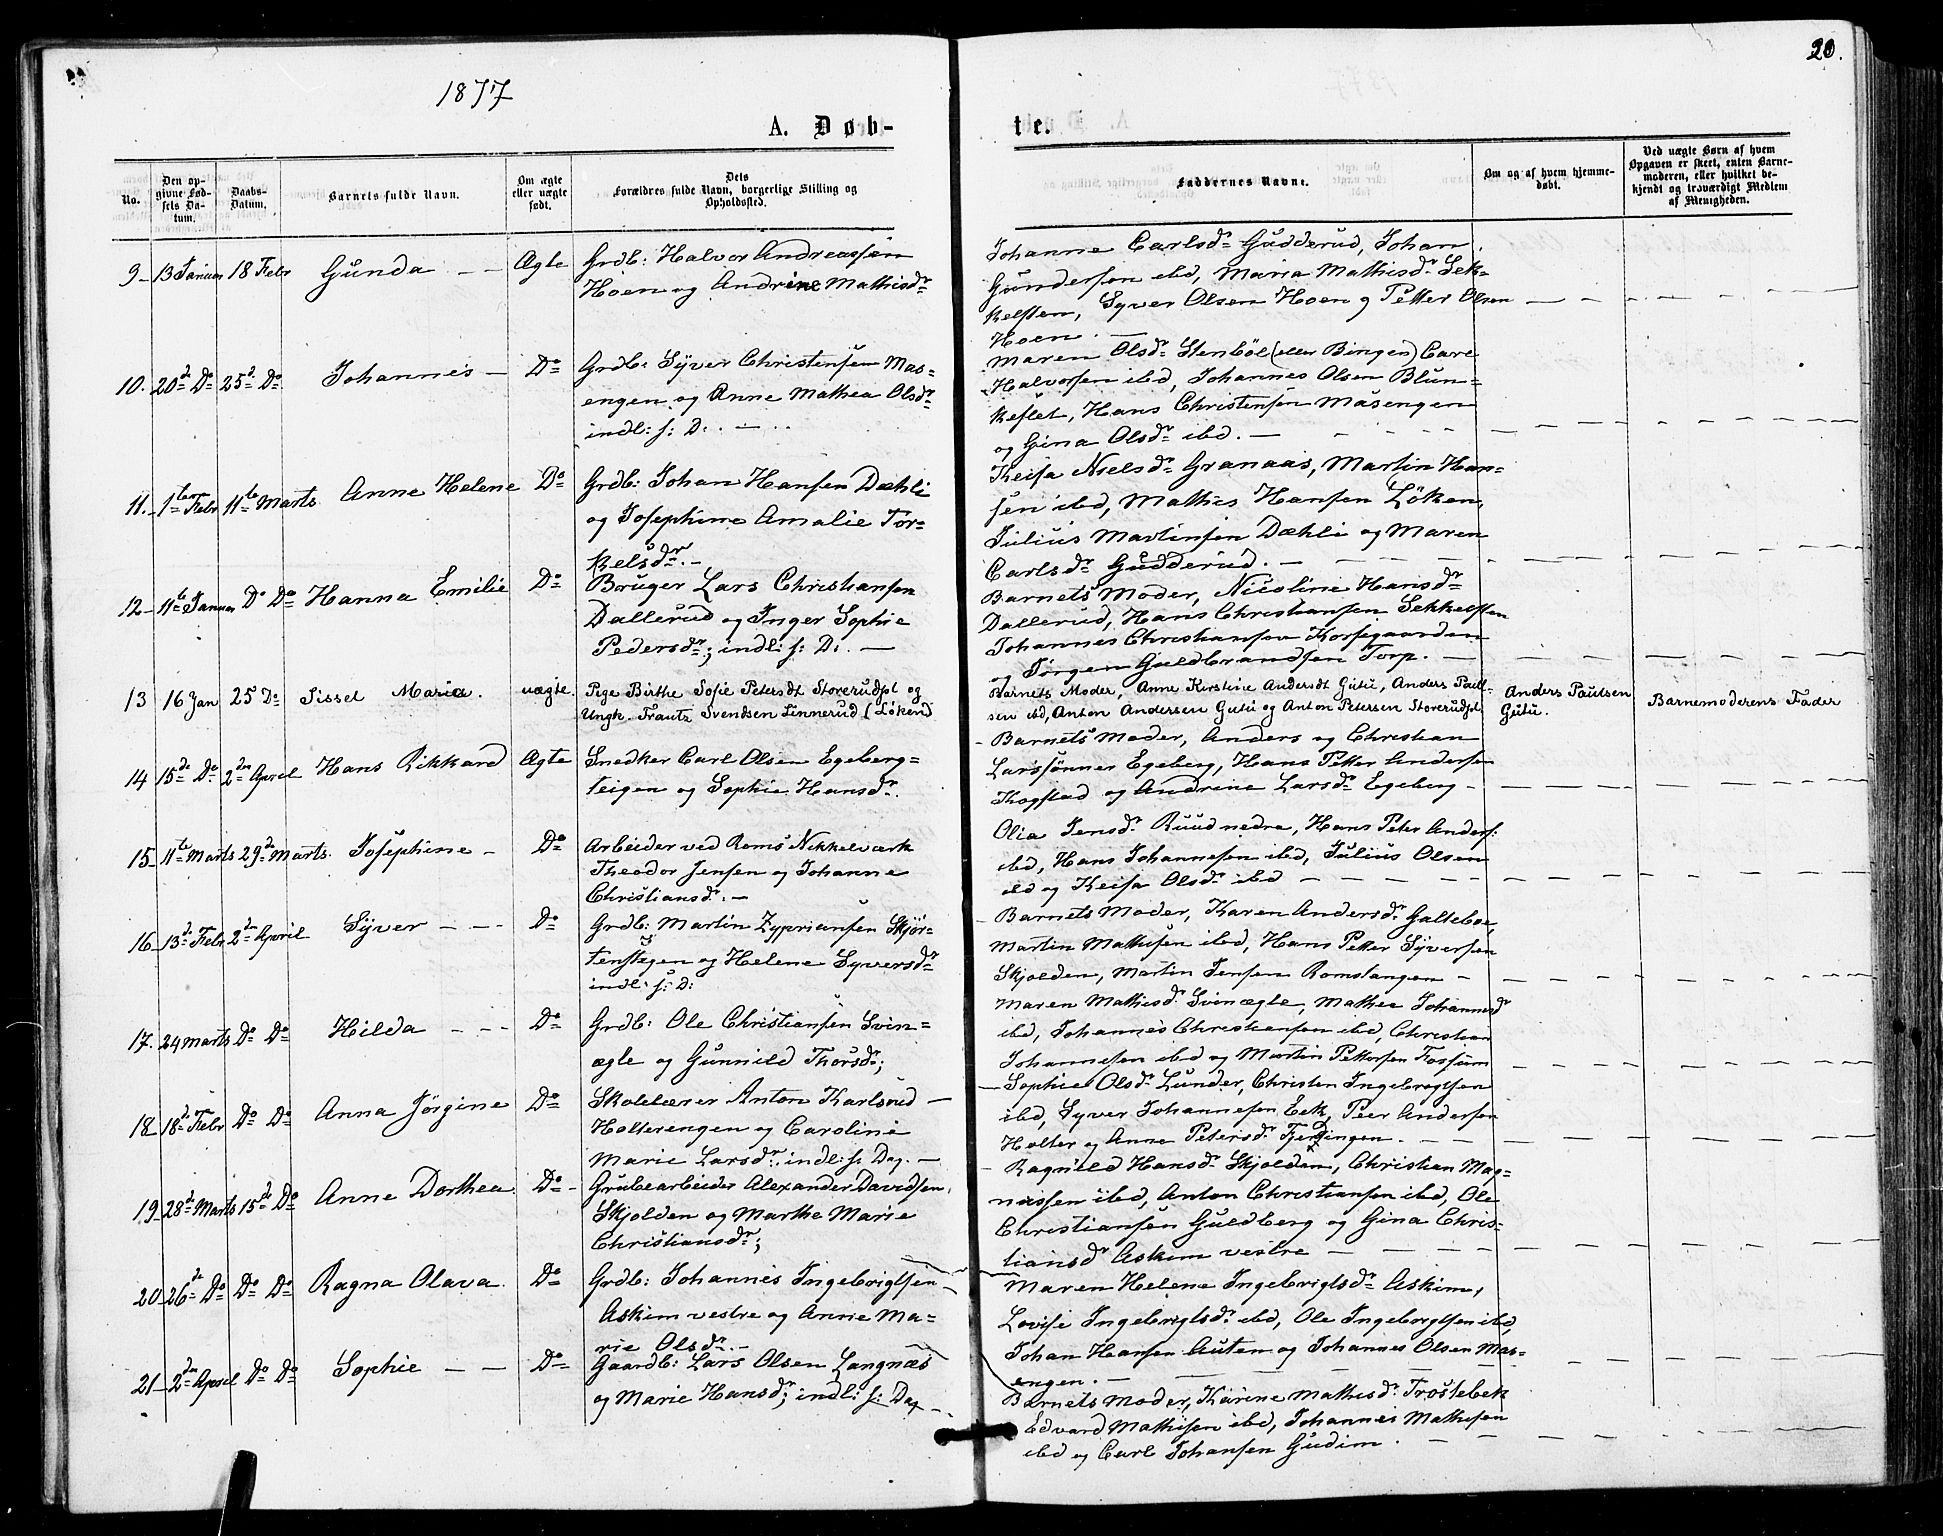 20.
1877
A. Døb-
te.
No.
Den op-
givne Fød-
sels Da-
tum.
Daabs-
Datum.
Barnets fulde Navn.
Om ægte
eller uægte
født.
Dets
Forældres fulde Navn, borgerlige Stilling og
Opholdssted.
Faddernes Navne.
Om og af hvem hjemme-
døbt.
Ved uægte Børn af hvem
Opgaven er skeet, enten Barne-
moderen, eller hvilket be-
kjendt og troværdigt Medlem
af Menigheden.
9 - 13 Januar 18 Febr Gunda - - Ægte
Grdb: Halvor Andreassen
Hoen og Andrine Mathisdr
Johanne Carlsdr Gudderud, Johan
Gundersen ibd, Maria Mathisdr Sek-
kelsten, Syver Olsen Hoen og Petter Olsen
Hoen. -
10. 20de Do 25de Do Johannes - Do
Grdb: Syver Christensen Mas-
engen og Anne Mathea Olsdr
indl: f: D: . -
Maren Olsdr Stenbøl (eller Bingen) Carl
Halvorsen ibd, Johannes Olsen Blun-
keslet, Hans Christensen Masengen
og Gina Olsdr ibd. -
11. - 1ste Febr 11te Marts Anne Helene Do
Grdb: Johan Hansen Dæhli
og Josephine Amalie Tor-
kelsdr. -
Keisa Nielsdr Granaas, Martin Han-
sen ibd, Mathis Hansen Löken,
Julius Martinsen Dæhli og Maren
Carlsdr Gudderud. -
12 - 11te Januar Do Do Hanna Emilie Do
Bruger Lars Christiansen
Dallerud og Inger Sophie
Pedersdr; indl: f: D: . -
Barnets Moder, Nicoline Hansdr
Dallerud, Hans Christiansen Sekkelsten
Johannes Christiansen Korsegaarden
og Jørgen Guldbrandsen Torp. -
13 16 Jan 25 Do Sissel Maria. uægte.
Pige Birthe Sofie Petersdt Storerudpl og
Ungk. Frantz Svendsen Linnerud (Løken)
Barnets Moder, Anne Kirstine Andersdt Gutu, Anders Paul-
sen ibd, Anton Andersen Gutu og Anton Petersen Storerudpl
Anders Paulsen
Gutu.
Barnemoderens Fader
14 15de Do 2den April Hans Rikkard Ægte
Snedker Carl Olsen Egeberg-
teigen og Sophie Hansdr.
Barnets Moder, Anders og Christian
Larssønner Egeberg, Hans Petter Andersen
Kogstad og Andrine Larsdr Egeberg -
15 11te Marts 29de Marts. Josephine - Do
Arbeider ved Roms Nikkelværk
Theodor Jensen og Johanne
Christiansdr. -
Olia Jensdr Ruud nedre, Hans Peter Anders:
ibd, Hans Johannesen ibd, Julius Olsen
ibd og Keisa Olsdr ibd
16 - 13de Febr 2den April Syver - - - Do
Grdb: Martin Zypriansen Skjör-
tenstegen og Helene Syversdr
indl: f: D:
Barnets Moder, Karen Andersdr Galteboe,
Martin Mathisen ibd, Hans Petter Syversen
Skjolden, Martin Jensen Romstangen -
17. 24 Marts Do Do Hilda - - - Do
Grdb: Ole Christiansen Svin-
ægle og Gunnild Thorsdr;
Maren Mathisdr Svinægle, Mathea Johannesd
ibd, Johannes Christiansen ibd, Christian
Johannesen ibd og Martin Pettersen Fossum
18 18de Febr Do Do Anna Jørgine Do
Skolelærer Anton Karlsrud -
Holterengen og Caroline
Marie Larsdr, indl: f: Dag. -
Sophie Olsdr Lunder, Christen Ingebregtsen
ibd, Syver Johannesen Eek, Peer Andersen
Holter og Anne Petersdr Fjerdingen. -
19 - 28de Marts 15de Do Anne Dorthea. Do
Grubearbeider Alexander Davidsen,
Skjolden og Marthe Marie
Christiansdr;
Ragnild Hansdr Skjolden, Christian Mag-
nussen ibd, Anton Christiansen ibd, Ole
Christiansen Guldberg og Gina Chris-
tiansdr Askim vestre
20 26de Do Do Do Ragna Olava. Do
Grdb: Johannes Ingebrigtsen
Askim vestre og Anne Ma-
rie Olsdr. -
Maren Helene Ingebrigtsdr Askim,
Lovise Ingebrigtsdr ibd, Ole Ingebrigtsen ibd,
Johan Hansen Auten og Johannes Olsen Mas-
engen. -
21 - 2den April Do Do Sophie - - Do
Gaardb: Lars Olsen Langnæs
og Marie Hansdr; indl: f: Dag -
Barnets Moder, Karine Mathisdr Trøstebek
Edvard Mathisen ibd, Johannes Mathisen
ibd og Carl Johansen Gudim.